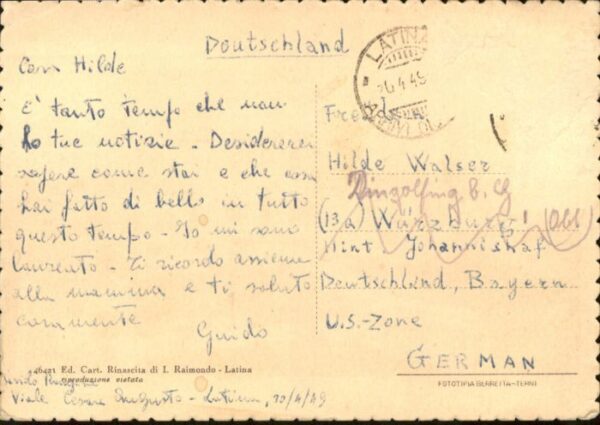 Doutschland
Cara Hilde
E' tanto tempo che non
ho tue notizie - Desidererei
sapere come stai e che cosa
hai fatto di bello in tutto
questo tempo - Io mi sono
laureato - Ti ricordo assieme
alla mamma e ti saluto
caramente
Guido
46421 Ed. Cart. Rinascita di I. Raimondo - Latina
riproduzione vietata
Viale Cesare Augusto - Latina, 20/4/49
LATINA
Hilde Walser
Dingolfing
(13a) Würzburg
Hint. Johannishof
Deutschland, Bayern
U.S.-Zone
GERMAN
FOTOTIPIA BERRETTA-TERNI